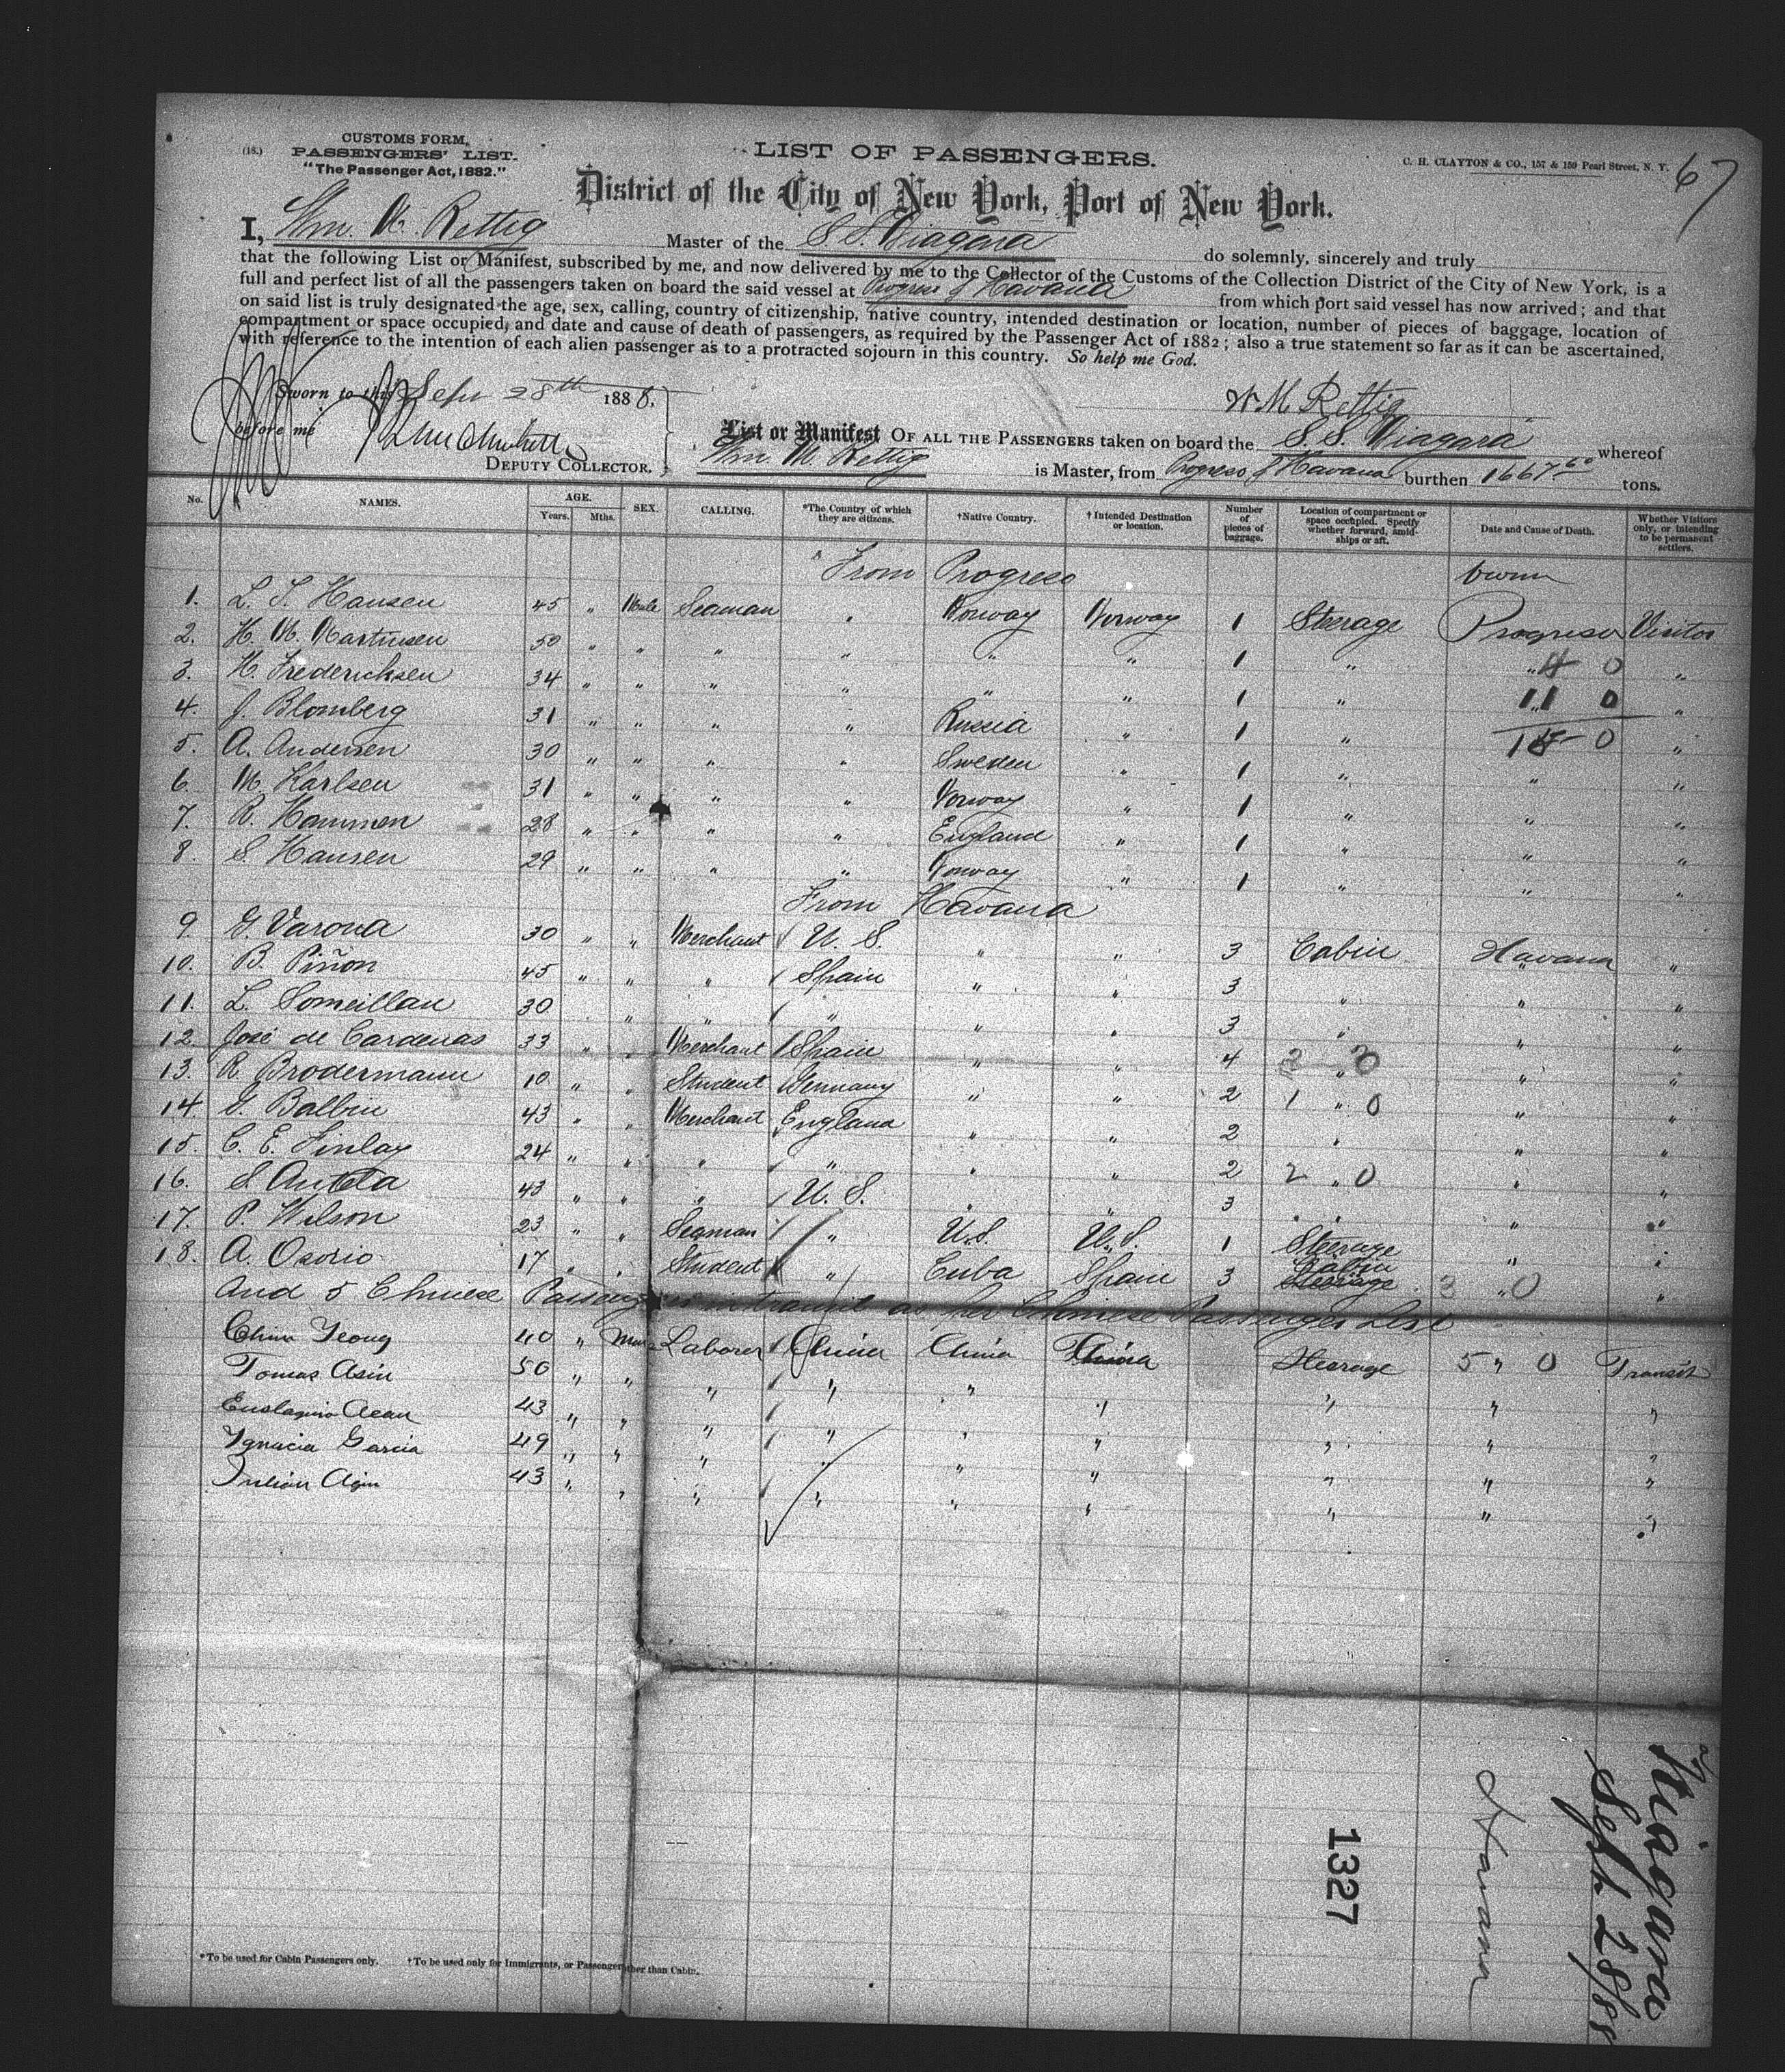 (18.)
CUSTOMS FORM,
PASSENGERS' LIST.
"The Passenger Act, 1882."
LIST OF PASSENGERS.
C. H. CLAYTON & CO., 157 & 159 Pearl Street, N. Y.
67
District of the City of New York, Port of New York.
I, Wm. M. Rettig Master of the S.S. Niagara do solemnly, sincerely and truly
that the following List or Manifest, subscribed by me, and now delivered by me to the Collector of the Customs of the Collection District of the City of New York, is a
full and perfect list of all the passengers taken on board the said vessel at Progreso & Havana from which port said vessel has now arrived; and that
on said list is truly designated the age, sex, calling, country of citizenship, native country, intended destination or location, number of pieces of baggage, location of
compartment or space occupied, and date and cause of death of passengers, as required by the Passenger Act of 1882; also a true statement so far as it can be ascertained,
with reference to the intention of each alien passenger as to a protracted sojourn in this country. So help me God.
Sworn to this Sept 28th 1888.
W M Rettig
before me
DEPUTY COLLECTOR.
List or Manifest OF ALL THE PASSENGERS taken on board the S.S. Niagara whereof
Wm. M. Rettig is Master, from Progreso & Havana burthen 1667 60 tons.
No. NAMES. AGE. Years. Mths. SEX. CALLING. *The Country of which they are citizens. †Native Country. †Intended Destination or location. Number of pieces of baggage. Location of compartment or space occupied. Specify whether forward, amidships or aft. Date and Cause of Death. Whether Visitors only, or intending to be permanent settlers.
From Progreso
1. L. T. Hansen 45 " Male Seaman " Norway Norway 1 Steerage Progreso Visitor
2. H. M. Martinsen 50 " " " " " " 1 " " 4 0 "
3. H. Frederichsen 34 " " " " " " 1 " " 11 0 "
4. J. Blomberg 31 " " " " Russia " 1 " 15 0 "
5. A. Andersen 30 " " " " Sweden " 1 " " "
6. M. Karlsen 31 " " " " Norway " 1 " " "
7. R. Hammon 28 " " " " England " 1 " " "
8. S. Hansen 29 " " " " Norway " 1 " " "
From Havana
9. G. Varona 30 " " Merchant U. S. " " 3 Cabin Havana "
10. B. Piñon 45 " " " Spain " " 3 " " "
11. L. Someillan 30 " " " " " 3 " " "
12. José de Cardenas 33 " " Merchant Spain " " 4 " " "
13. R. Brodermann 10 " " Student Germany " " 2 1 " 0 " "
14. G. Balbin 43 " " Merchant England " " 2 " " "
15. C. E. Finlay 24 " " " " " " 2 2 " 0 " "
16. S. 43 " " " U. S. " " 3 " " "
17. P. Wilson 23 " " Seaman " U.S. U.S. 1 Steerage " "
18. A. Osorio 17 " " Student " Cuba Spain 3 Cabin Steerage 3 " 0 "
And 5 Chinese Passengers in transit as per Chinese Passenger List
Chim Yeong 40 " Male Laborer China China China Steerage 5 " 0 Transit
Tomas Asin 50 " " " " " " " " "
43 " " " " " " " " "
Ygnacia Garcia 49 " " " " " " " " "
Julian 43 " " " " " " " " "
Niagara
Sept 28/88
Havana
1327
*To be used for Cabin Passengers only. †To be used only for Immigrants, or Passengers other than Cabin.